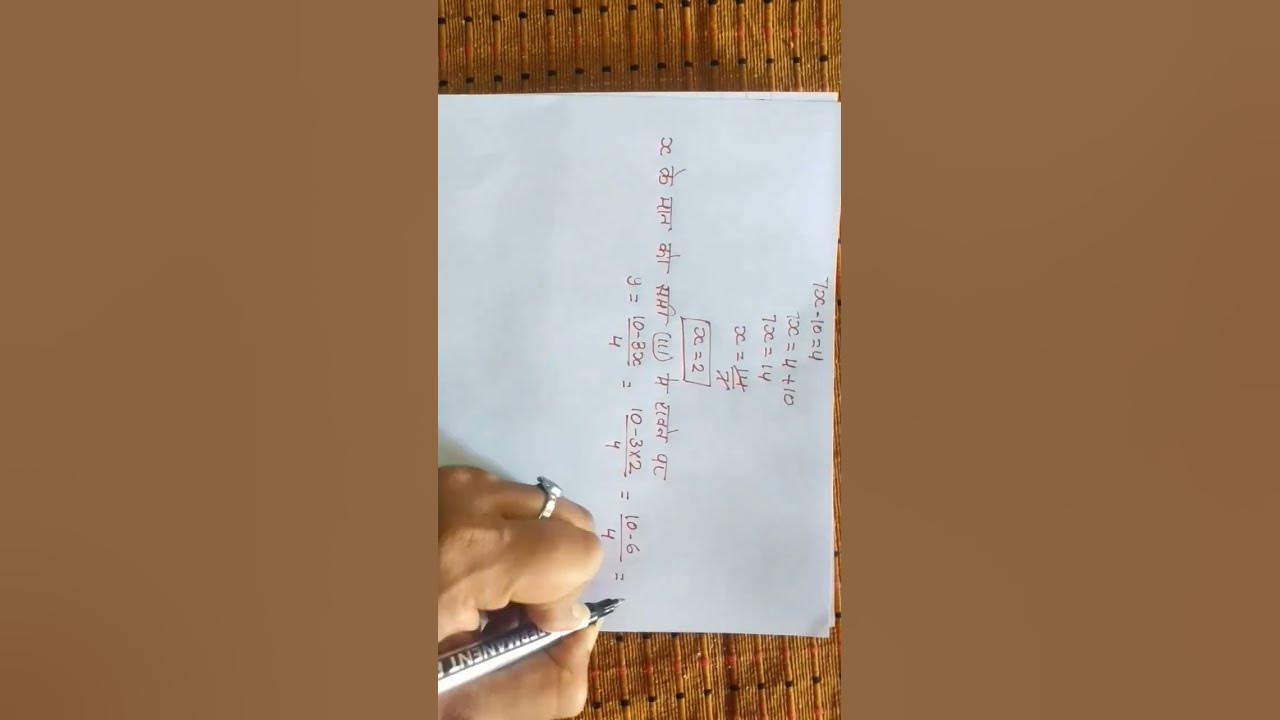 7x-10=4
7x = 4+10
7x = 14
x = 14/7
x = 2
x के मान को समी (iii) में रखने पर
y = 10-3x/4 = 10-3×2/4 = 10-6/4 =
PERMANENT